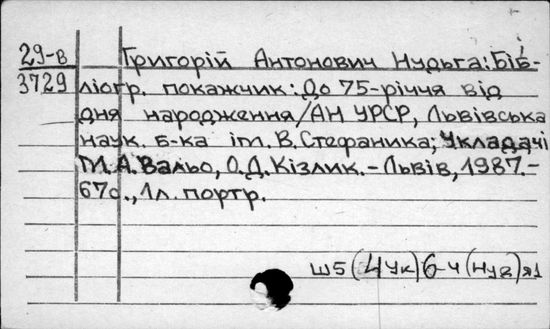 29-в
3729
Григорій Антонович Нудьга: Біб-
ліогр. покажчик: До 75-річчя від
дня народження/АН УРСР, Львівська
наук. б-ка ім. В. Стефаника; Укладачі
М.А. Вальо, О.Д. Кізлик.-Львів, 1987.-
67с., 1л. портр.
Ш5(4Ук)6-4(Нуд)я1